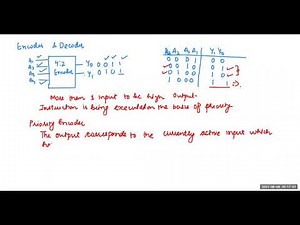 Encoder & Decoder
4:2
Encoder
Y₀ 0 0 1 1
Y₁ 0 1 0 1
A₃ A₂ A₁ A₀ Y₁ Y₀
0 0 0 1 0 0
0 0 1 0 0 1
0 1 0 0 1 0
1 0 0 0 1 1
More than 1 input to be high Output.
Instruction is being executed on the basis of priority
Priority Encoder
The output corresponds to the currently active input which